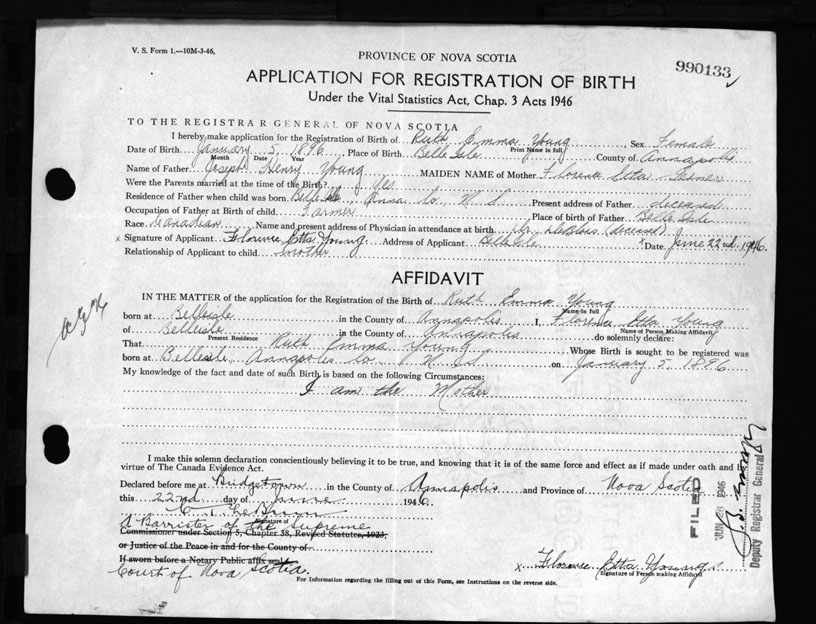 V. S. Form 1.—10M-3-46,
PROVINCE OF NOVA SCOTIA
990133
APPLICATION FOR REGISTRATION OF BIRTH
Under the Vital Statistics Act, Chap. 3 Acts 1946
TO THE REGISTRAR GENERAL OF NOVA SCOTIA
I hereby make application for the Registration of Birth of Ruth Emma Young, Sex Female
Print Name in full
Date of Birth January 5, 1896 Place of Birth Belle Isle County of Annapolis
Month Date Year
Name of Father Joseph Henry Young MAIDEN NAME of Mother Florence Etta
Were the Parents married at the time of the Birth? Yes
Residence of Father when child was born Belle Isle, Anna Co, N. S. Present address of Father deceased
Occupation of Father at Birth of child Farmer Place of birth of Father Belle Isle
Race Canadian Name and present address of Physician in attendance at birth Dr. (deceased)
x Signature of Applicant Florence Etta Young Address of Applicant Belleisle x Date June 22nd, 1946.
Relationship of Applicant to child mother
AFFIDAVIT
IN THE MATTER of the application for the Registration of the Birth of Ruth Emma Young
Name in full
born at Belleisle in the County of Annapolis I, Florence Etta Young
Name of Person Making Affidavit
of Belleisle in the County of Annapolis do solemnly declare:
Present Residence
That Ruth Emma Young Whose Birth is sought to be registered was
born at Belleisle, Annapolis Co. N. S. on January 5 1896
My knowledge of the fact and date of such Birth is based on the following Circumstances:
I am the Mother
I make this solemn declaration conscientiously believing it to be true, and knowing that it is of the same force and effect as if made under oath and by
virtue of The Canada Evidence Act.
Declared before me at Bridgetown in the County of Annapolis and Province of Nova Scotia
this 22nd day of June 1946
Signature of
A Barrister of the Supreme
Commissioner under Section 5, Chapter 38, Revised Statutes, 1923,
or Justice of the Peace in and for the County of
If sworn before a Notary Public affix seal
Court of Nova Scotia.
x Florence Etta Young
Signature of Person making Affidavit
For Information regarding the filling out of this Form, see Instructions on the reverse side.
FILED
JUN 1946
Deputy Registrar General